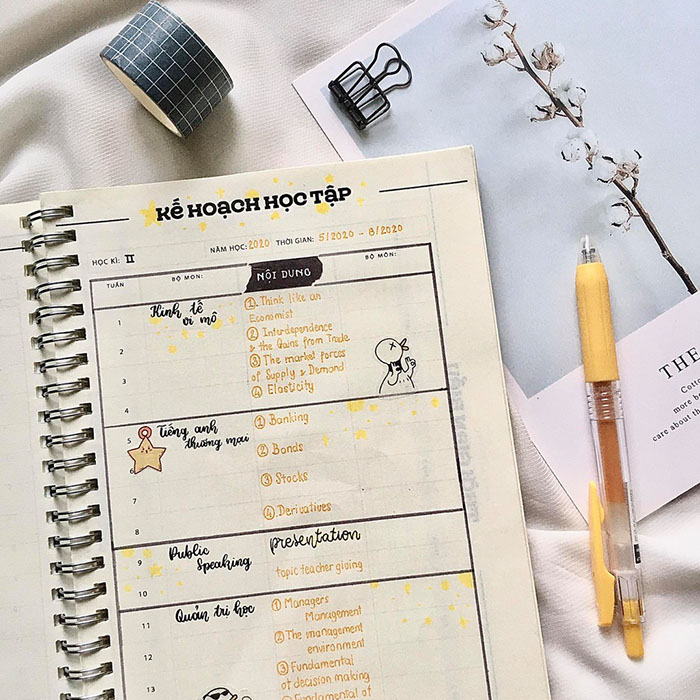 KẾ HOẠCH HỌC TẬP
HỌC KÌ: II NĂM HỌC: 2020 THỜI GIAN: 5/2020 - 8/2020
TUẦN BỘ MÔN: NỘI DUNG BỘ MÔN:
1
2
3
4
Kinh tế
vi mô
① Think like an
Economist
② Interdependence
& the Gains from Trade
③ The market forces
of Supply & Demand
④ Elasticity
5
6
7
8
Tiếng anh
thương mại
① Banking
② Bonds
③ Stocks
④ Derivatives
9
10
Public
Speaking
presentation
topic teacher giving
11
12
13
Quản trị học
① Managers
Management
② The management
environment
③ Fundamental
of decision making
④ Fundamental of
THE
more
care about